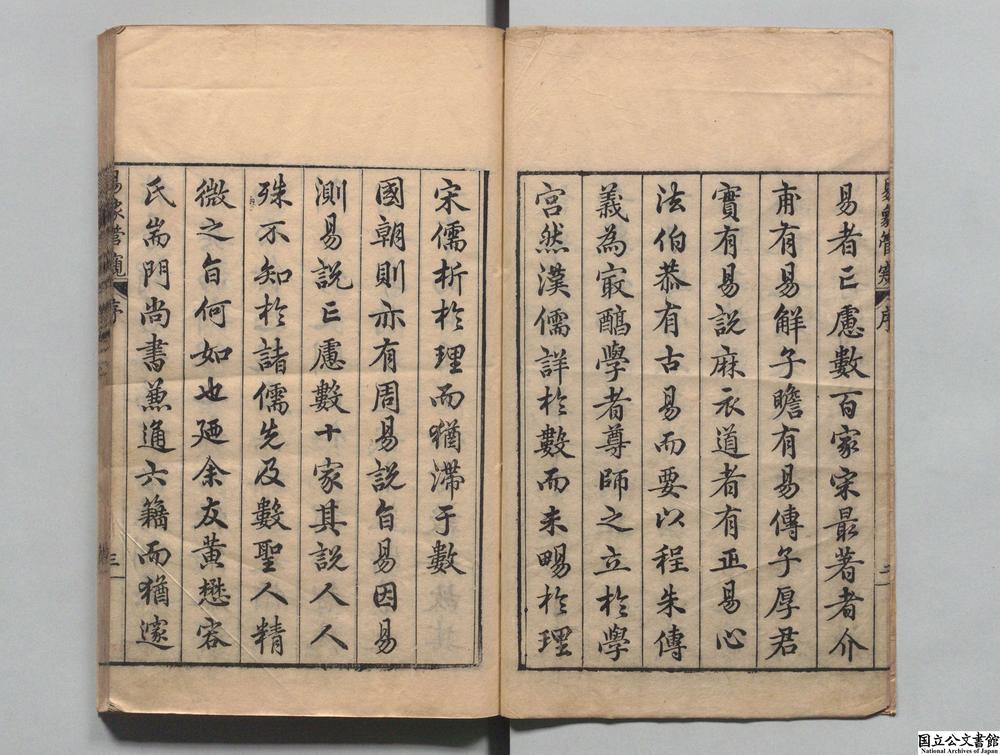 易者亡慮數百家宋最著者介
甫有易解子瞻有易傳子厚君
實有易說麻衣道者有正易心
法伯恭有古易而要以程朱傳
義為㝡醇學者尊師之立於學
宮然漢儒詳於數而未暢於理
宋儒析於理而猶滯于數
國朝則亦有周易說旨易因易
測易說亡慮數十家其說人人
殊不知於諸儒先及數聖人精
微之旨何如也廼余友黃懋容
氏耑門尚書兼通六籍而猶邃
易象管窺
序
三
国立公文書館
National Archives of Japan